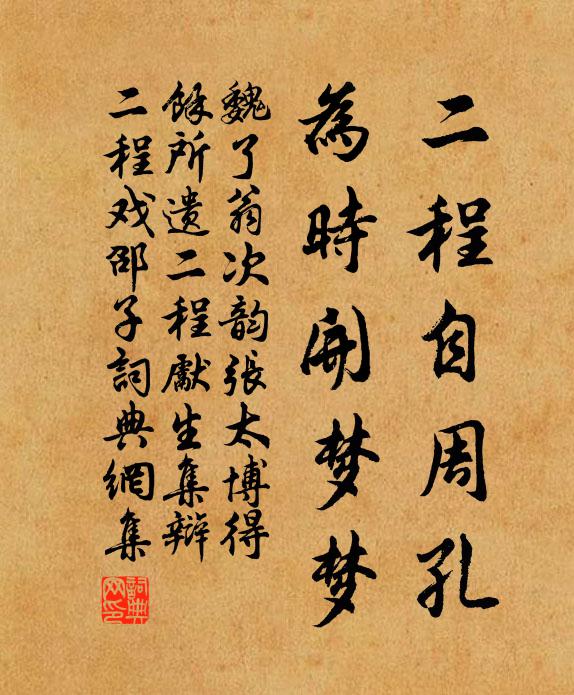 二程自周孔
為時開梦梦
魏了翁次韵張太博得
餘所遗二程獻生集辯
二程戏邵子詞典網集
詞典网印